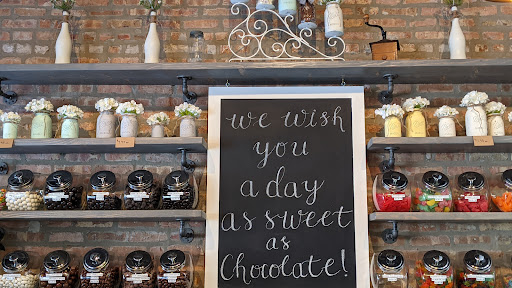 we wish
you
a day
as sweet
as
Chocolate!